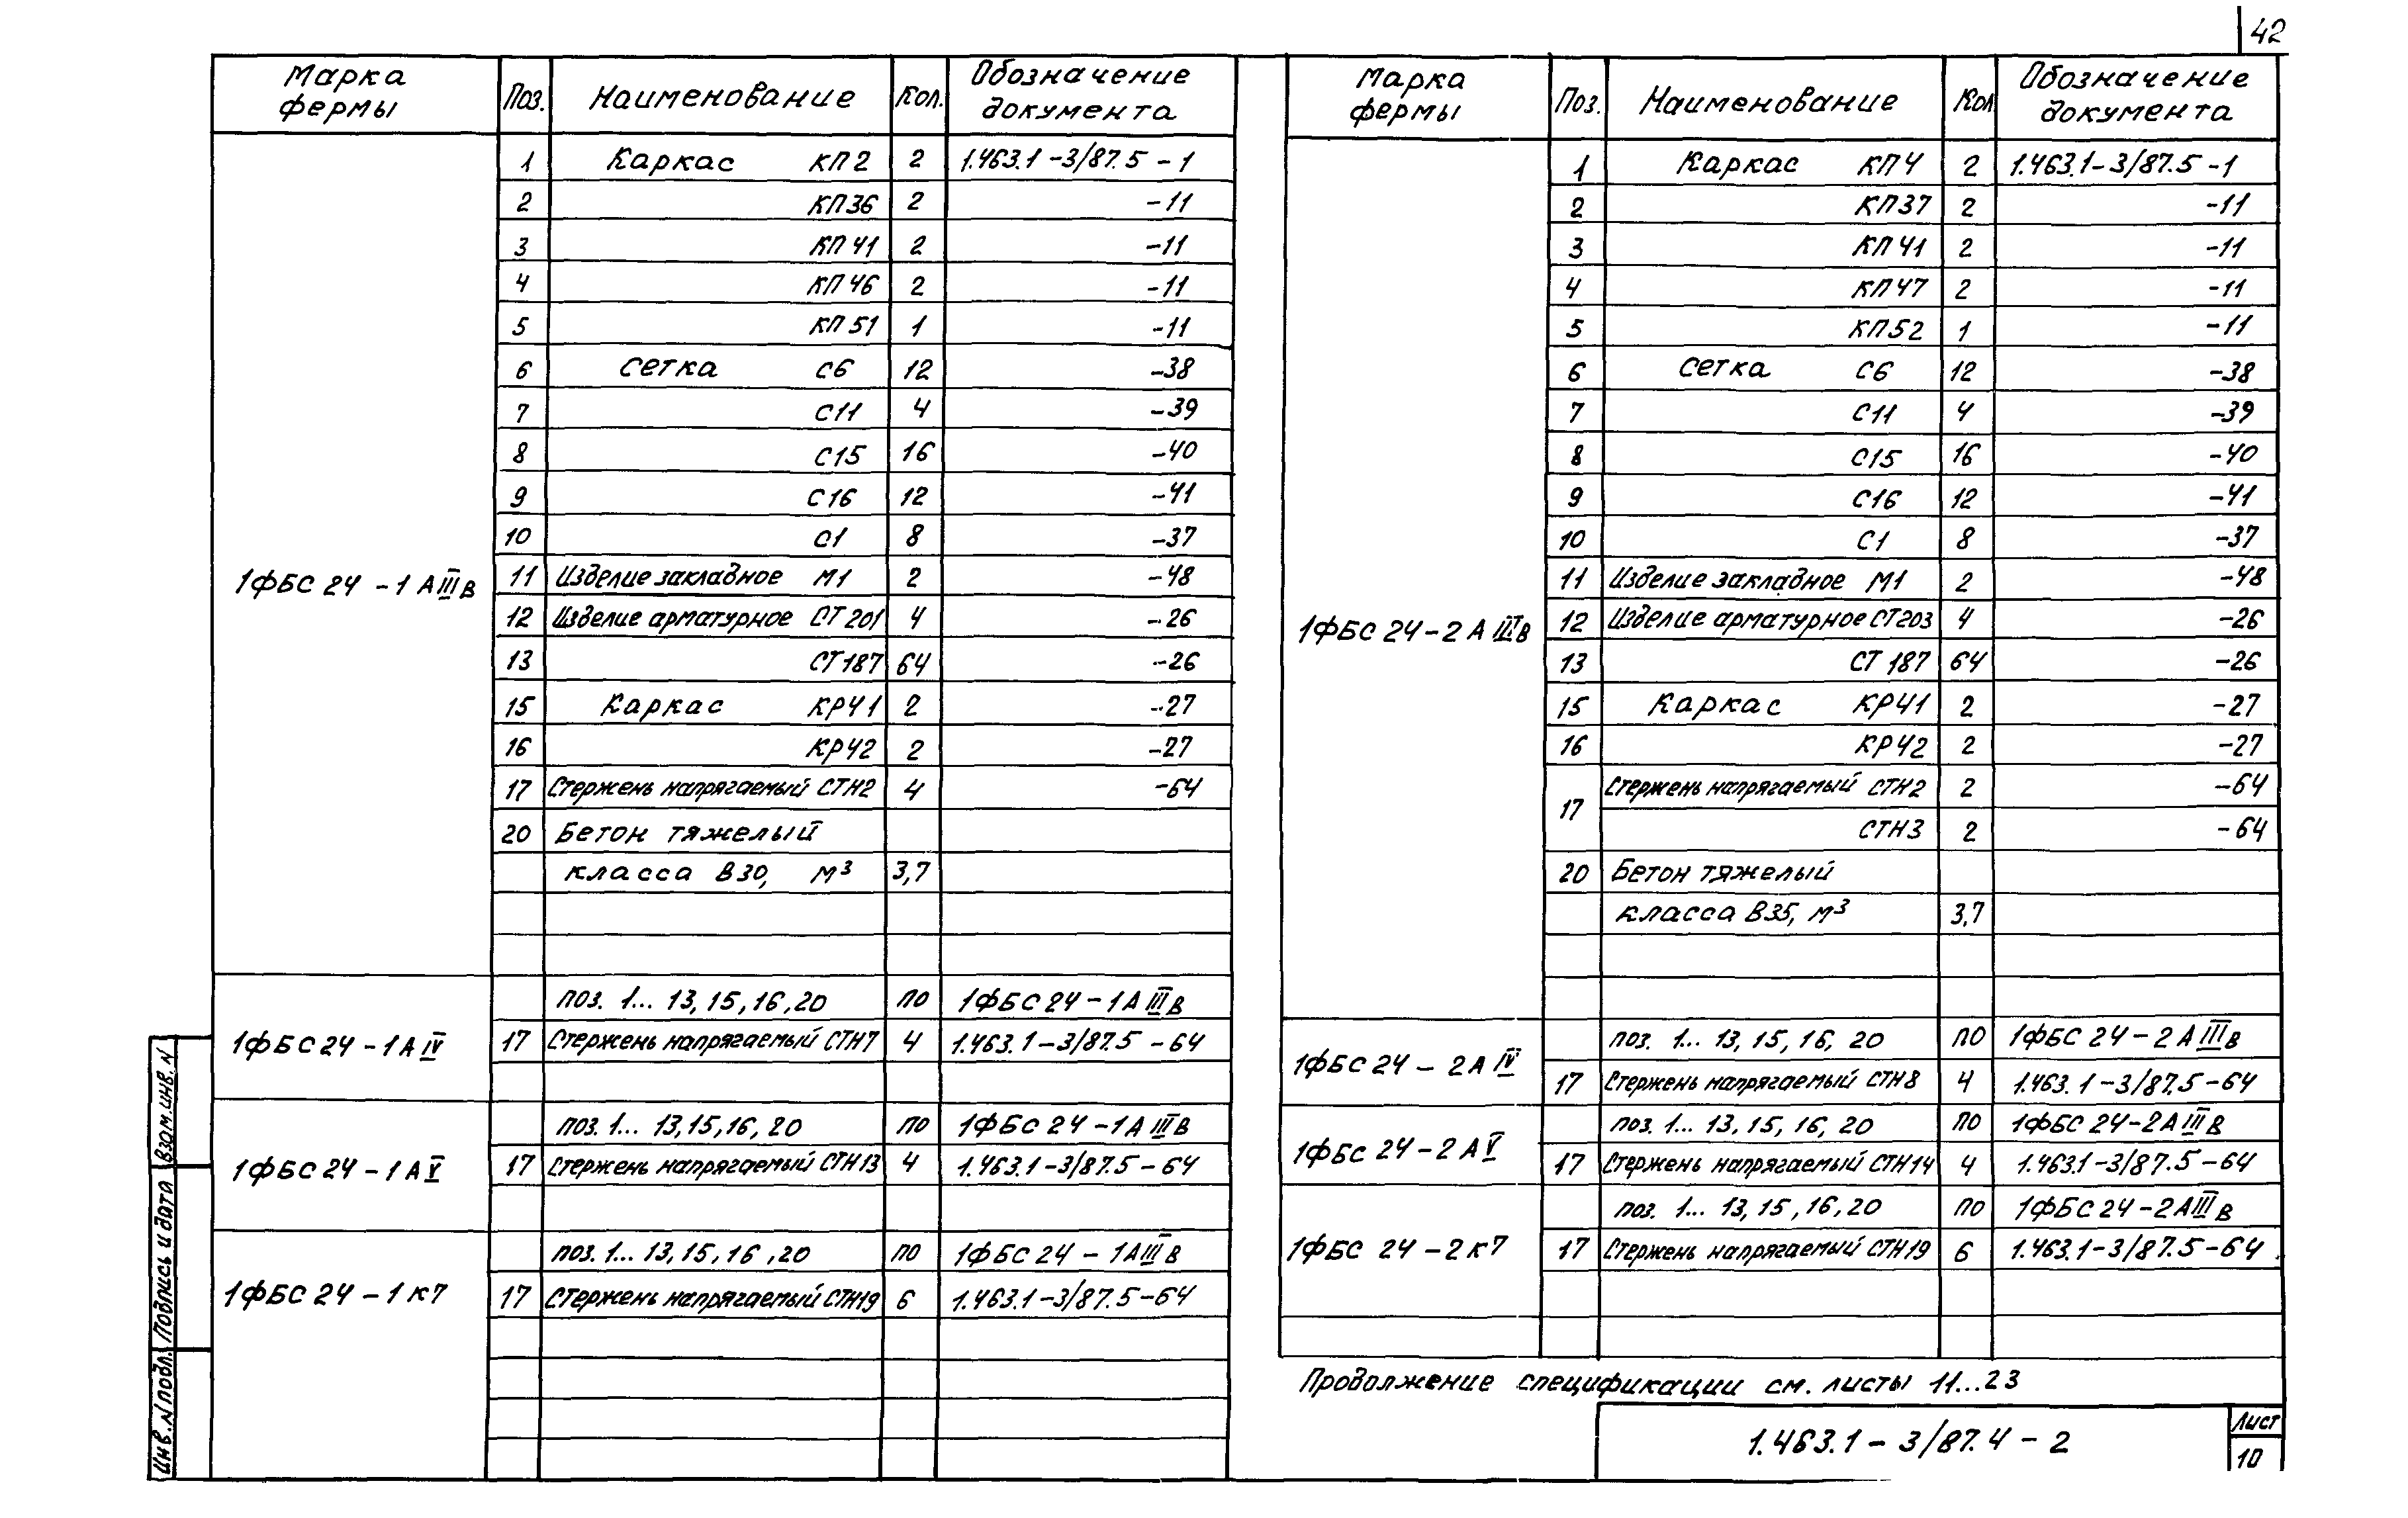 42
Марка фермы | Поз. | Наименование | Кол. | Обозначение документа
1ФБС 24 - 1 АIIIв
1 | Каркас КП2 | 2 | 1.463.1-3/87.5 - 1
2 | КП36 | 2 | -11
3 | КП41 | 2 | -11
4 | КП46 | 2 | -11
5 | КП51 | 1 | -11
6 | Сетка С6 | 12 | -38
7 | С11 | 4 | -39
8 | С15 | 16 | -40
9 | С16 | 12 | -41
10 | С1 | 8 | -37
11 | Изделие закладное М1 | 2 | -48
12 | Изделие арматурное СТ201 | 4 | -26
13 | СТ187 | 64 | -26
15 | Каркас КР41 | 2 | -27
16 | КР42 | 2 | -27
17 | Стержень напрягаемый СТН2 | 4 | -64
20 | Бетон тяжелый
класса В30, м³ | 3,7
1ФБС 24 - 1 АIV
поз. 1... 13, 15, 16, 20 | по | 1ФБС 24 - 1АIIIв
17 | Стержень напрягаемый СТН7 | 4 | 1.463.1-3/87.5 - 64
1ФБС 24 - 1 АV
поз. 1... 13, 15, 16, 20 | по | 1ФБС 24 - 1АIIIв
17 | Стержень напрягаемый СТН13 | 4 | 1.463.1-3/87.5 - 64
1ФБС 24 - 1 К7
поз. 1... 13, 15, 16, 20 | по | 1ФБС 24 - 1АIIIв
17 | Стержень напрягаемый СТН19 | 6 | 1.463.1-3/87.5-64
Марка фермы | Поз. | Наименование | Кол | Обозначение документа
1ФБС 24 - 2 АIIIв
1 | Каркас КП4 | 2 | 1.463.1-3/87.5 -1
2 | КП37 | 2 | -11
3 | КП41 | 2 | -11
4 | КП47 | 2 | -11
5 | КП52 | 1 | -11
6 | Сетка С6 | 12 | -38
7 | С11 | 4 | -39
8 | С15 | 16 | -40
9 | С16 | 12 | -41
10 | С1 | 8 | -37
11 | Изделие закладное М1 | 2 | -48
12 | Изделие арматурное СТ203 | 4 | -26
13 | СТ187 | 64 | -26
15 | Каркас КР41 | 2 | -27
16 | КР42 | 2 | -27
17 | Стержень напрягаемый СТН2 | 2 | -64
СТН3 | 2 | -64
20 | Бетон тяжелый
класса В35, м³ | 3,7
1ФБС 24 - 2 АIV
поз. 1... 13, 15, 16, 20 | по | 1ФБС 24 - 2 АIIIв
17 | Стержень напрягаемый СТН8 | 4 | 1.463.1-3/87.5-64
1ФБС 24 - 2 АV
поз. 1... 13, 15, 16, 20 | по | 1ФБС 24-2АIIIв
17 | Стержень напрягаемый СТН14 | 4 | 1.463.1-3/87.5-64
1ФБС 24 - 2 К7
поз. 1... 13, 15, 16, 20 | по | 1ФБС 24-2АIIIв
17 | Стержень напрягаемый СТН19 | 6 | 1.463.1-3/87.5-64
Продолжение спецификации см. листы 11...23
1.463.1 - 3/87.4 - 2
Лист
10
Инв. N подл.
Подпись и дата
Взам. инв. N